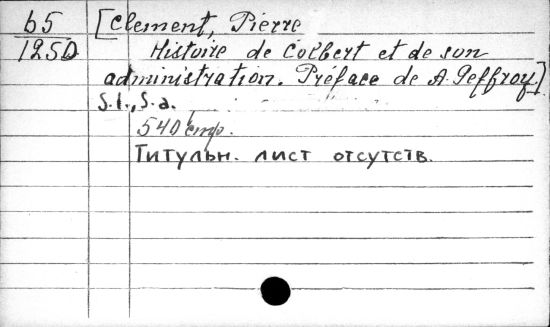 65 [Clement, Pierre
1250 Histoire de Colbert et de son
administration. Préface de A. Geffroy]
S.l., S.a.
540 стр.
Титульн. лист отсутств.